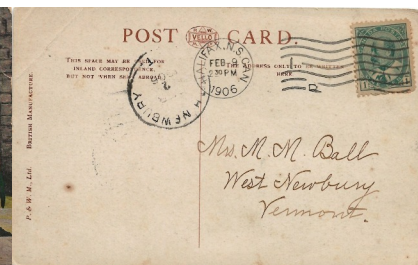 POST CARD.
VELLOT
THIS SPACE MAY BE USED FOR
INLAND CORRESPONDENCE,
BUT NOT WHEN SENT ABROAD
THE ADDRESS ONLY TO BE WRITTEN
HERE
HALIFAX, N.S. CAN
FEB 9
2 30 PM
1906
NEWBURY
P. & W. M., Ltd. BRITISH MANUFACTURE.
Mrs. M. M. Ball
West Newbury
Vermont.